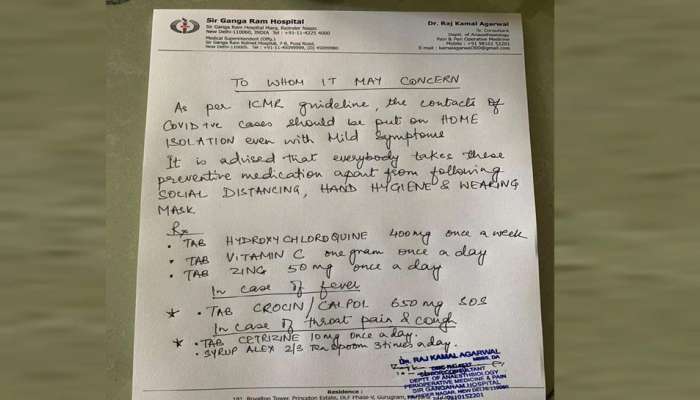 Sir Ganga Ram Hospital
Sir Ganga Ram Hospital Marg, Rajinder Nagar,
New Delhi-110060, INDIA Tel : +91-11-4225 4000
Medical Superintendent (Offg.)
Sir Ganga Ram Hospital, Pusa Road,
New Delhi-110005. Tel :
Dr. Raj Kamal Agarwal
Sr. Consultant
Deptt. of Anaesthesiology
Pain & Peri Operative Medicine
Mobile : +91 98101 52201
TO WHOM IT MAY CONCERN
As per ICMR guideline, the contacts of
COVID +ve cases should be put on HOME
ISOLATION even with Mild Symptoms
It is advised that everybody takes these
preventive medication apart from following
SOCIAL DISTANCING, HAND HYGIENE & WEARING
MASK
Rx
• TAB HYDROXY CHLOROQUINE 400 mg once a week
• TAB VITAMIN C one gram once a day
• TAB ZINC 50 mg once a day
In case of fever
* • TAB CROCIN/CALPOL 650 mg SOS
In case of throat pain & cough
* • TAB CETRIZINE 10 mg once a day.
• SYRUP ALEX 2/3 Tea spoon 3 times a day.
Dr. RAJ KAMAL AGARWAL
DEPTT. OF ANAESTHESIOLOGY
PERIOPERATIVE MEDICINE & PAIN
SIR GANGARAM HOSPITAL
RAJINDER NAGAR, NEW DELHI-110060
Residence :
Princeton Estate, DLF Phase-V, Gurugram,